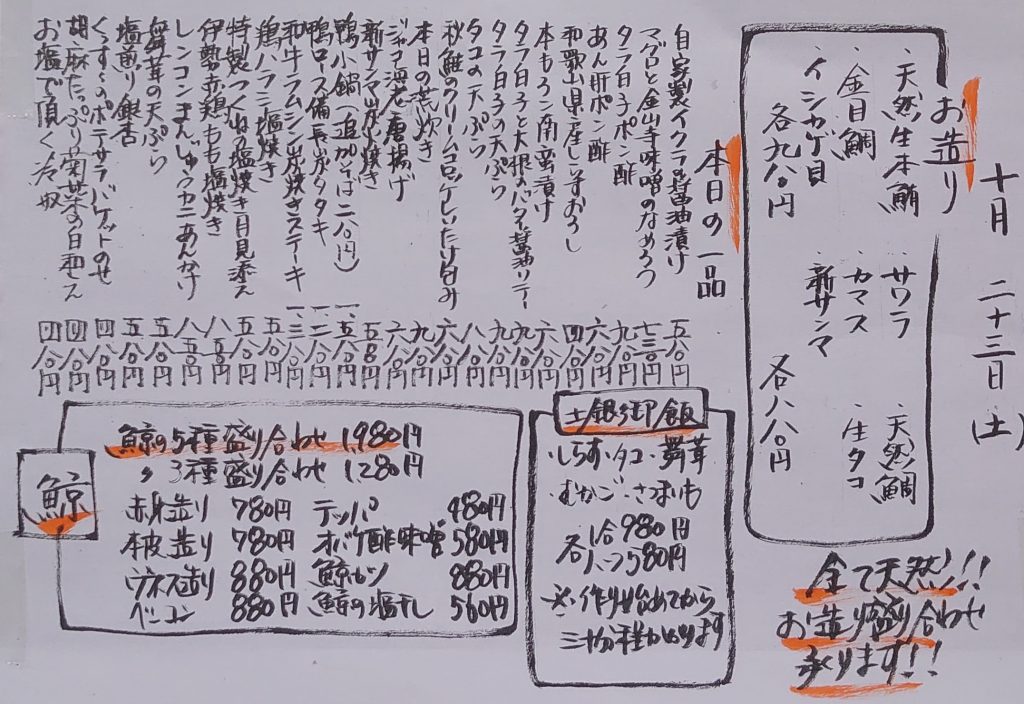 十月 二十三日(土)
お造り
・天然生本鮪 ・サワラ ・天然鯛
・金目鯛 ・カマス ・生タコ
・イシカゲ貝 ・新サンマ
各九八〇円 各八八〇円
全て天然!!
お造り盛り合わせ
承ります!!
本日の一品
自家製イクラ醤油漬け 五八〇円
マグロと金山寺味噌のなめろう 七三〇円
タラ白子ポン酢 九八〇円
あん肝ポン酢 六八〇円
和歌山県産しらすおろし 四八〇円
本もろこ南蛮漬け 六八〇円
タラ白子と大根のバター醤油ソテー 九八〇円
タラ白子の天ぷら 九八〇円
タコの天ぷら 八八〇円
秋鮭のクリームコロッケしいたけ包み 六八〇円
本日の荒炊き 九八〇円
ジャコ海老唐揚げ 六八〇円
新サンマ炭火焼き 五八〇円
鴨小鍋(追加そば二八〇円) 一、五八〇円
鴨ロース備長炭タタキ 一、二八〇円
和牛ラムシン炭焼きステーキ 一、三八〇円
鶏ハラミ塩焼き 五八〇円
特製つくね塩焼き月見添え 五八〇円
伊勢赤鶏もも塩焼き 八五〇円
レンコンまんじゅうカニあんかけ 八五〇円
舞茸の天ぷら 五八〇円
塩煎り銀杏 五八〇円
くんすーのポテサラバケットのせ 四八〇円
胡麻たっぷり菊菜の白和え 四八〇円
お塩で頂く冷奴 四八〇円
土鍋御飯
・しらす・タコ・舞茸
・むかご・さつまいも
各1合980円
各ハーフ580円
※作り始めてから
三十分程かかります
鯨
鯨の5種盛り合わせ 1,980円
〃 3種盛り合わせ 1,280円
赤身造り 780円 テッパ 480円
本皮造り 780円 オバケ酢味噌 580円
ウネス造り 880円 鯨カツ 880円
ベーコン 880円 鯨の塩干し 560円